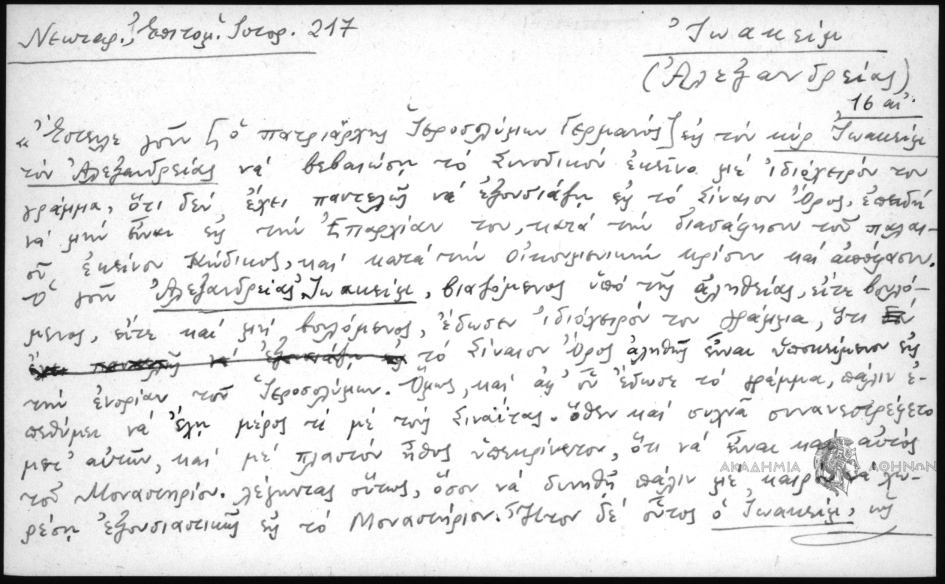 Νεκταρ., Ἐπιτομ. Ἱστορ. 217
Ἰωακείμ
(Ἀλεξανδρείας)
16 αἰ.
«Ἔστειλε γοῦν [ὁ πατριάρχης Ἱεροσολύμων Γερμανός] εἰς τόν κύρ Ἰωακείμ
τόν Ἀλεξανδρείας νά βεβαιώσῃ τό Συνοδικόν ἐκεῖνο μέ ἰδιόχειρόν του
γράμμα, ὅτι δέν ἔχει παντελῶς νά ἐξουσιάζῃ εἰς τό Σίναιον Ὄρος, ἐπειδή
νά μήν εἶναι εἰς τήν Ἐπαρχίαν του, κατά τήν διασάφησιν τοῦ παλαι-
οῦ ἐκείνου Κώδικος, καί κατά τήν Οἰκουμενικήν κρίσιν καί ἀπόφασιν.
Ὁ γοῦν Ἀλεξανδρείας Ἰωακείμ, βιαζόμενος ὑπό τῆς ἀληθείας, εἴτε βουλό-
μενος, εἴτε καί μή βουλόμενος, ἔδωσεν ἰδιόχειρόν του γράμμα, ὅτι
τό Σίναιον Ὄρος ἀληθῶς εἶναι ὑποκείμενον εἰς
τήν ἐνορίαν τοῦ Ἱεροσολύμων. Ὅμως, καί ἀφ' οὗ ἔδωσε τό γράμμα, πάλιν ἐ-
πεθύμει νά ἔχῃ μέρος τι μέ τούς Σιναΐτας. ὅθεν καί συχνά συνανεστρέφετο
μετ' αὐτῶν, καί μέ πλαστόν ἦθος ὑπεκρίνετον, ὅτι νά εἶναι καί αὐτός
τοῦ Μοναστηρίου. λέγωντας οὕτως, ὅσον νά δυνηθῇ πάλιν μέ καιρόν νά χω-
ρέσῃ ἐξουσιαστικῶς εἰς τό Μοναστήριον. Ἦτον δέ οὗτος ὁ Ἰωακείμ, ὡς
ΑΚΑΔΗΜΙΑ ΑΘΗΝΩΝ